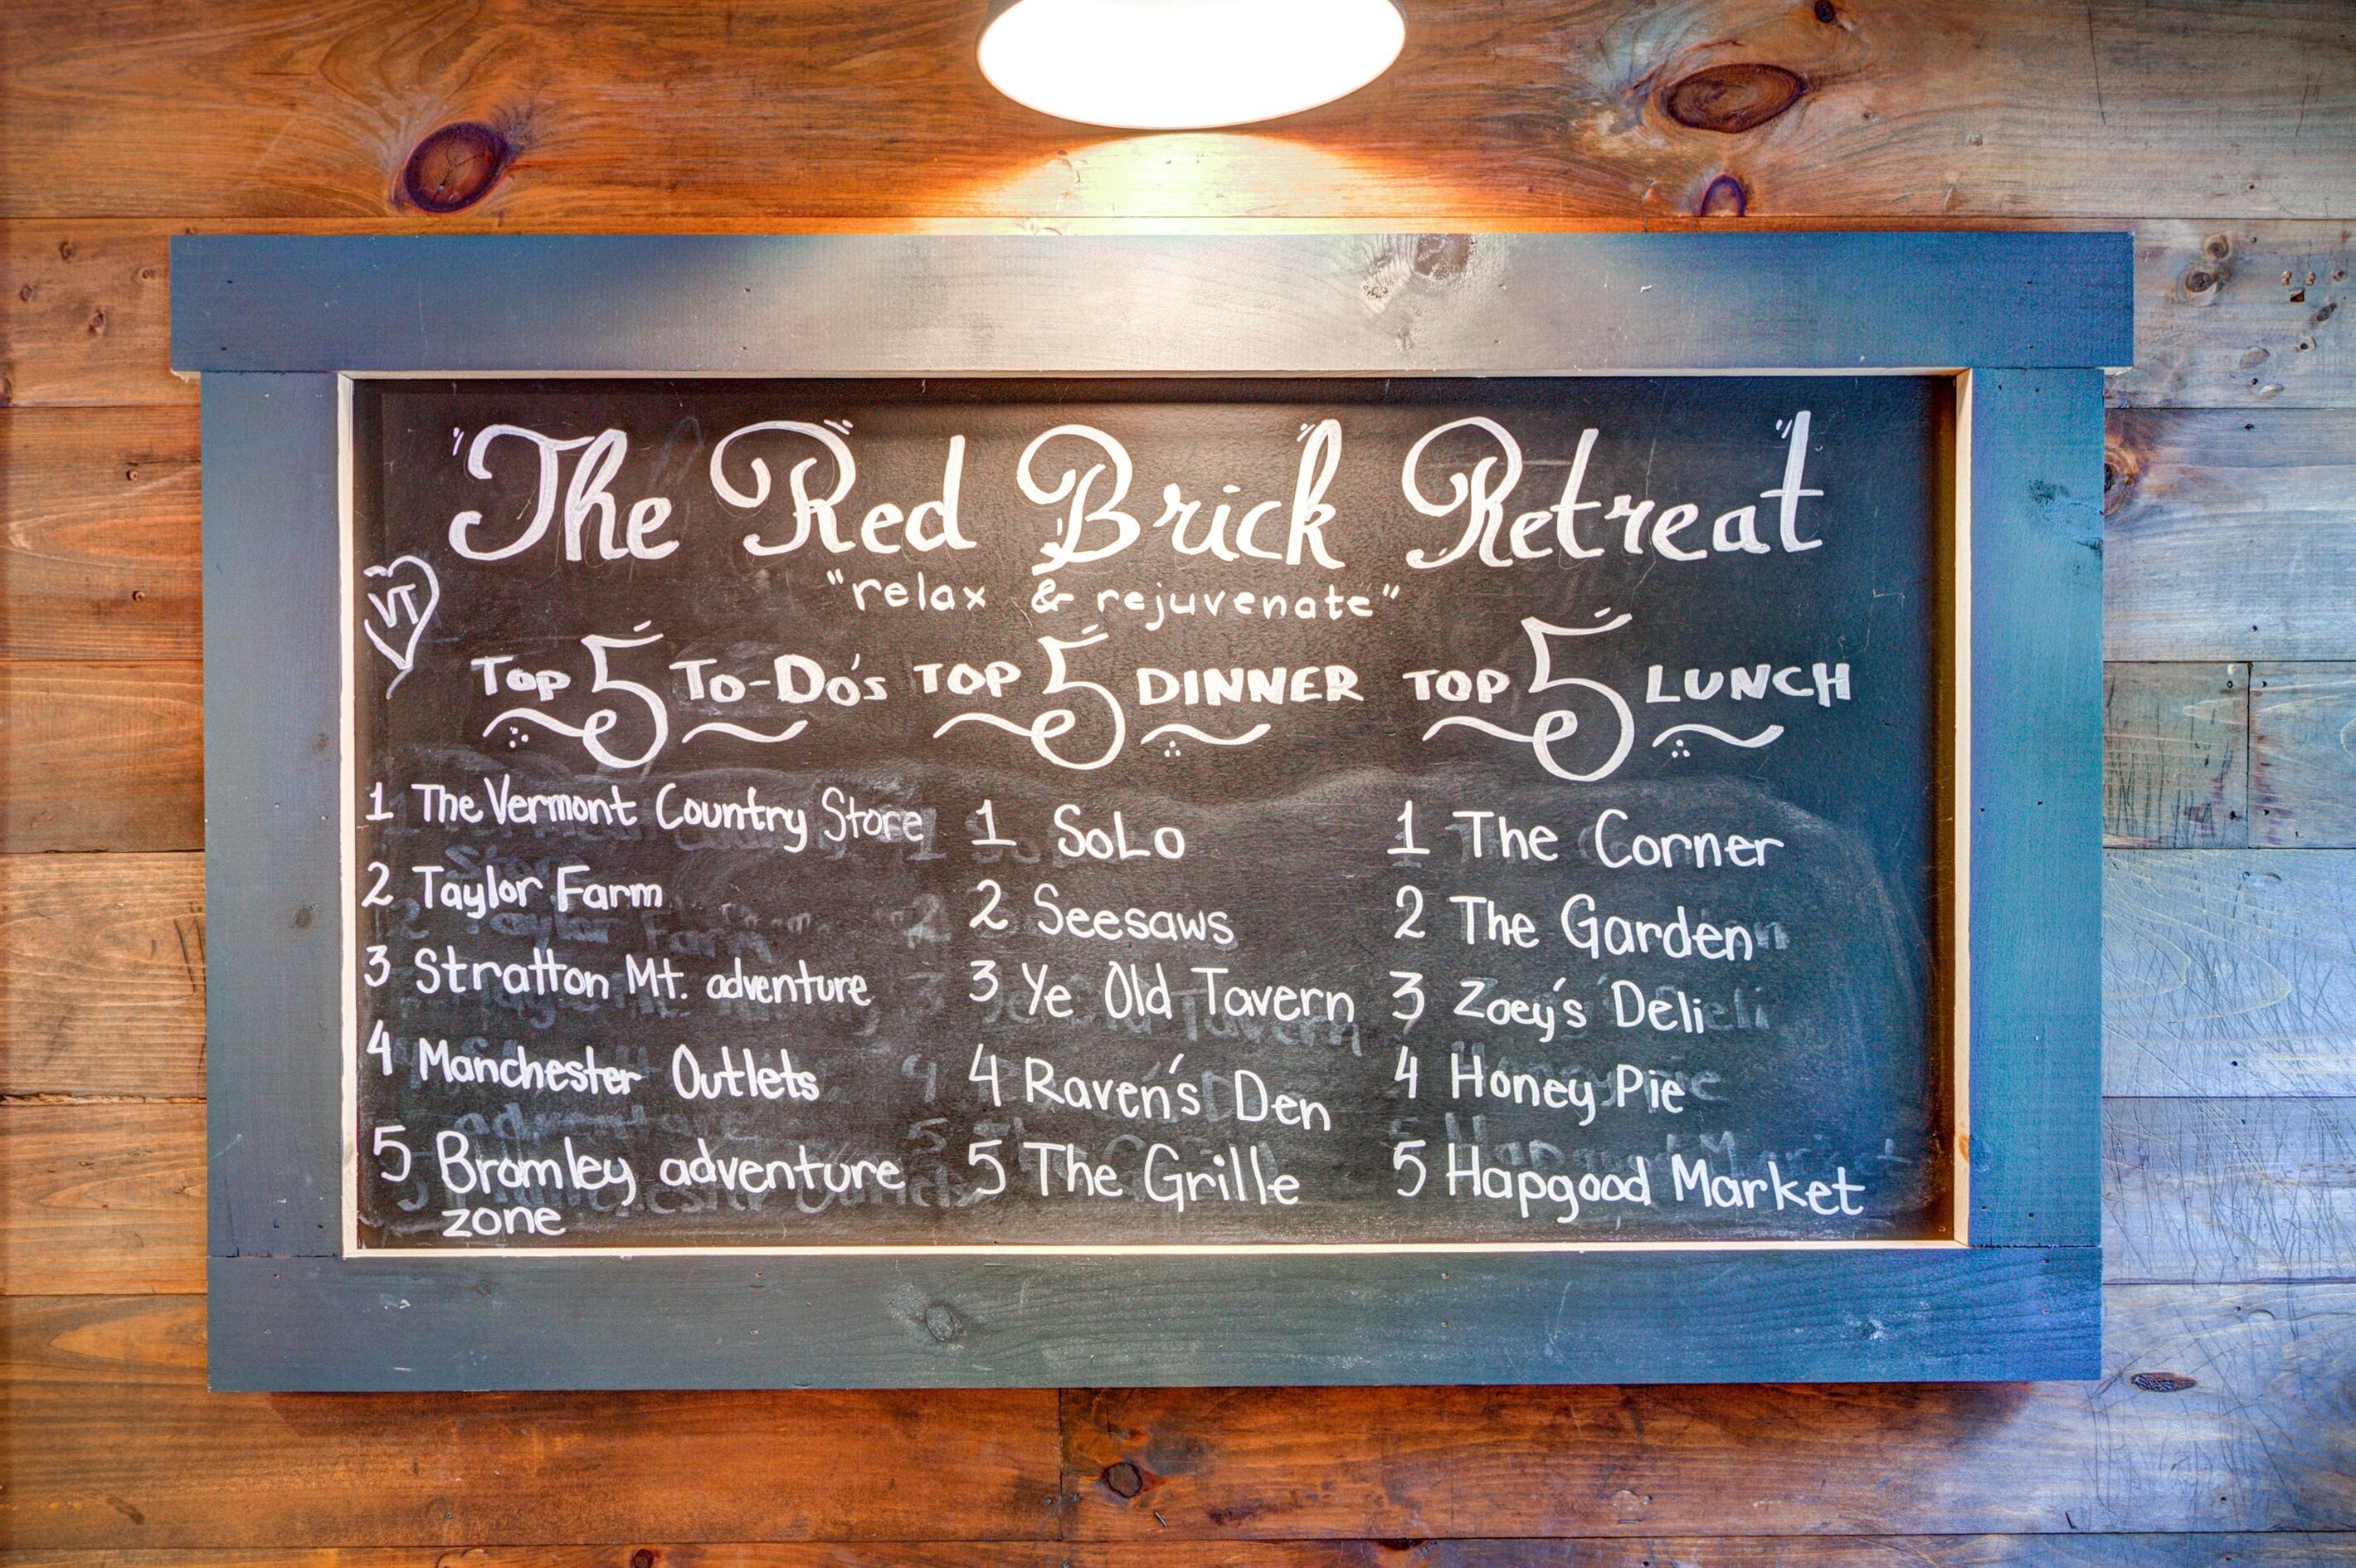 The Red Brick Retreat
"relax & rejuvenate"
VT
Top 5 To-Do's
1 The Vermont Country Store
2 Taylor Farm
3 Stratton Mt. adventure
4 Manchester Outlets
5 Bromley adventure
zone
TOP 5 DINNER
1 SoLo
2 Seesaws
3 Ye Old Tavern
4 Raven's Den
5 The Grille
TOP 5 LUNCH
1 The Corner
2 The Garden
3 Zoey's Deli
4 Honey Pie
5 Hapgood Market